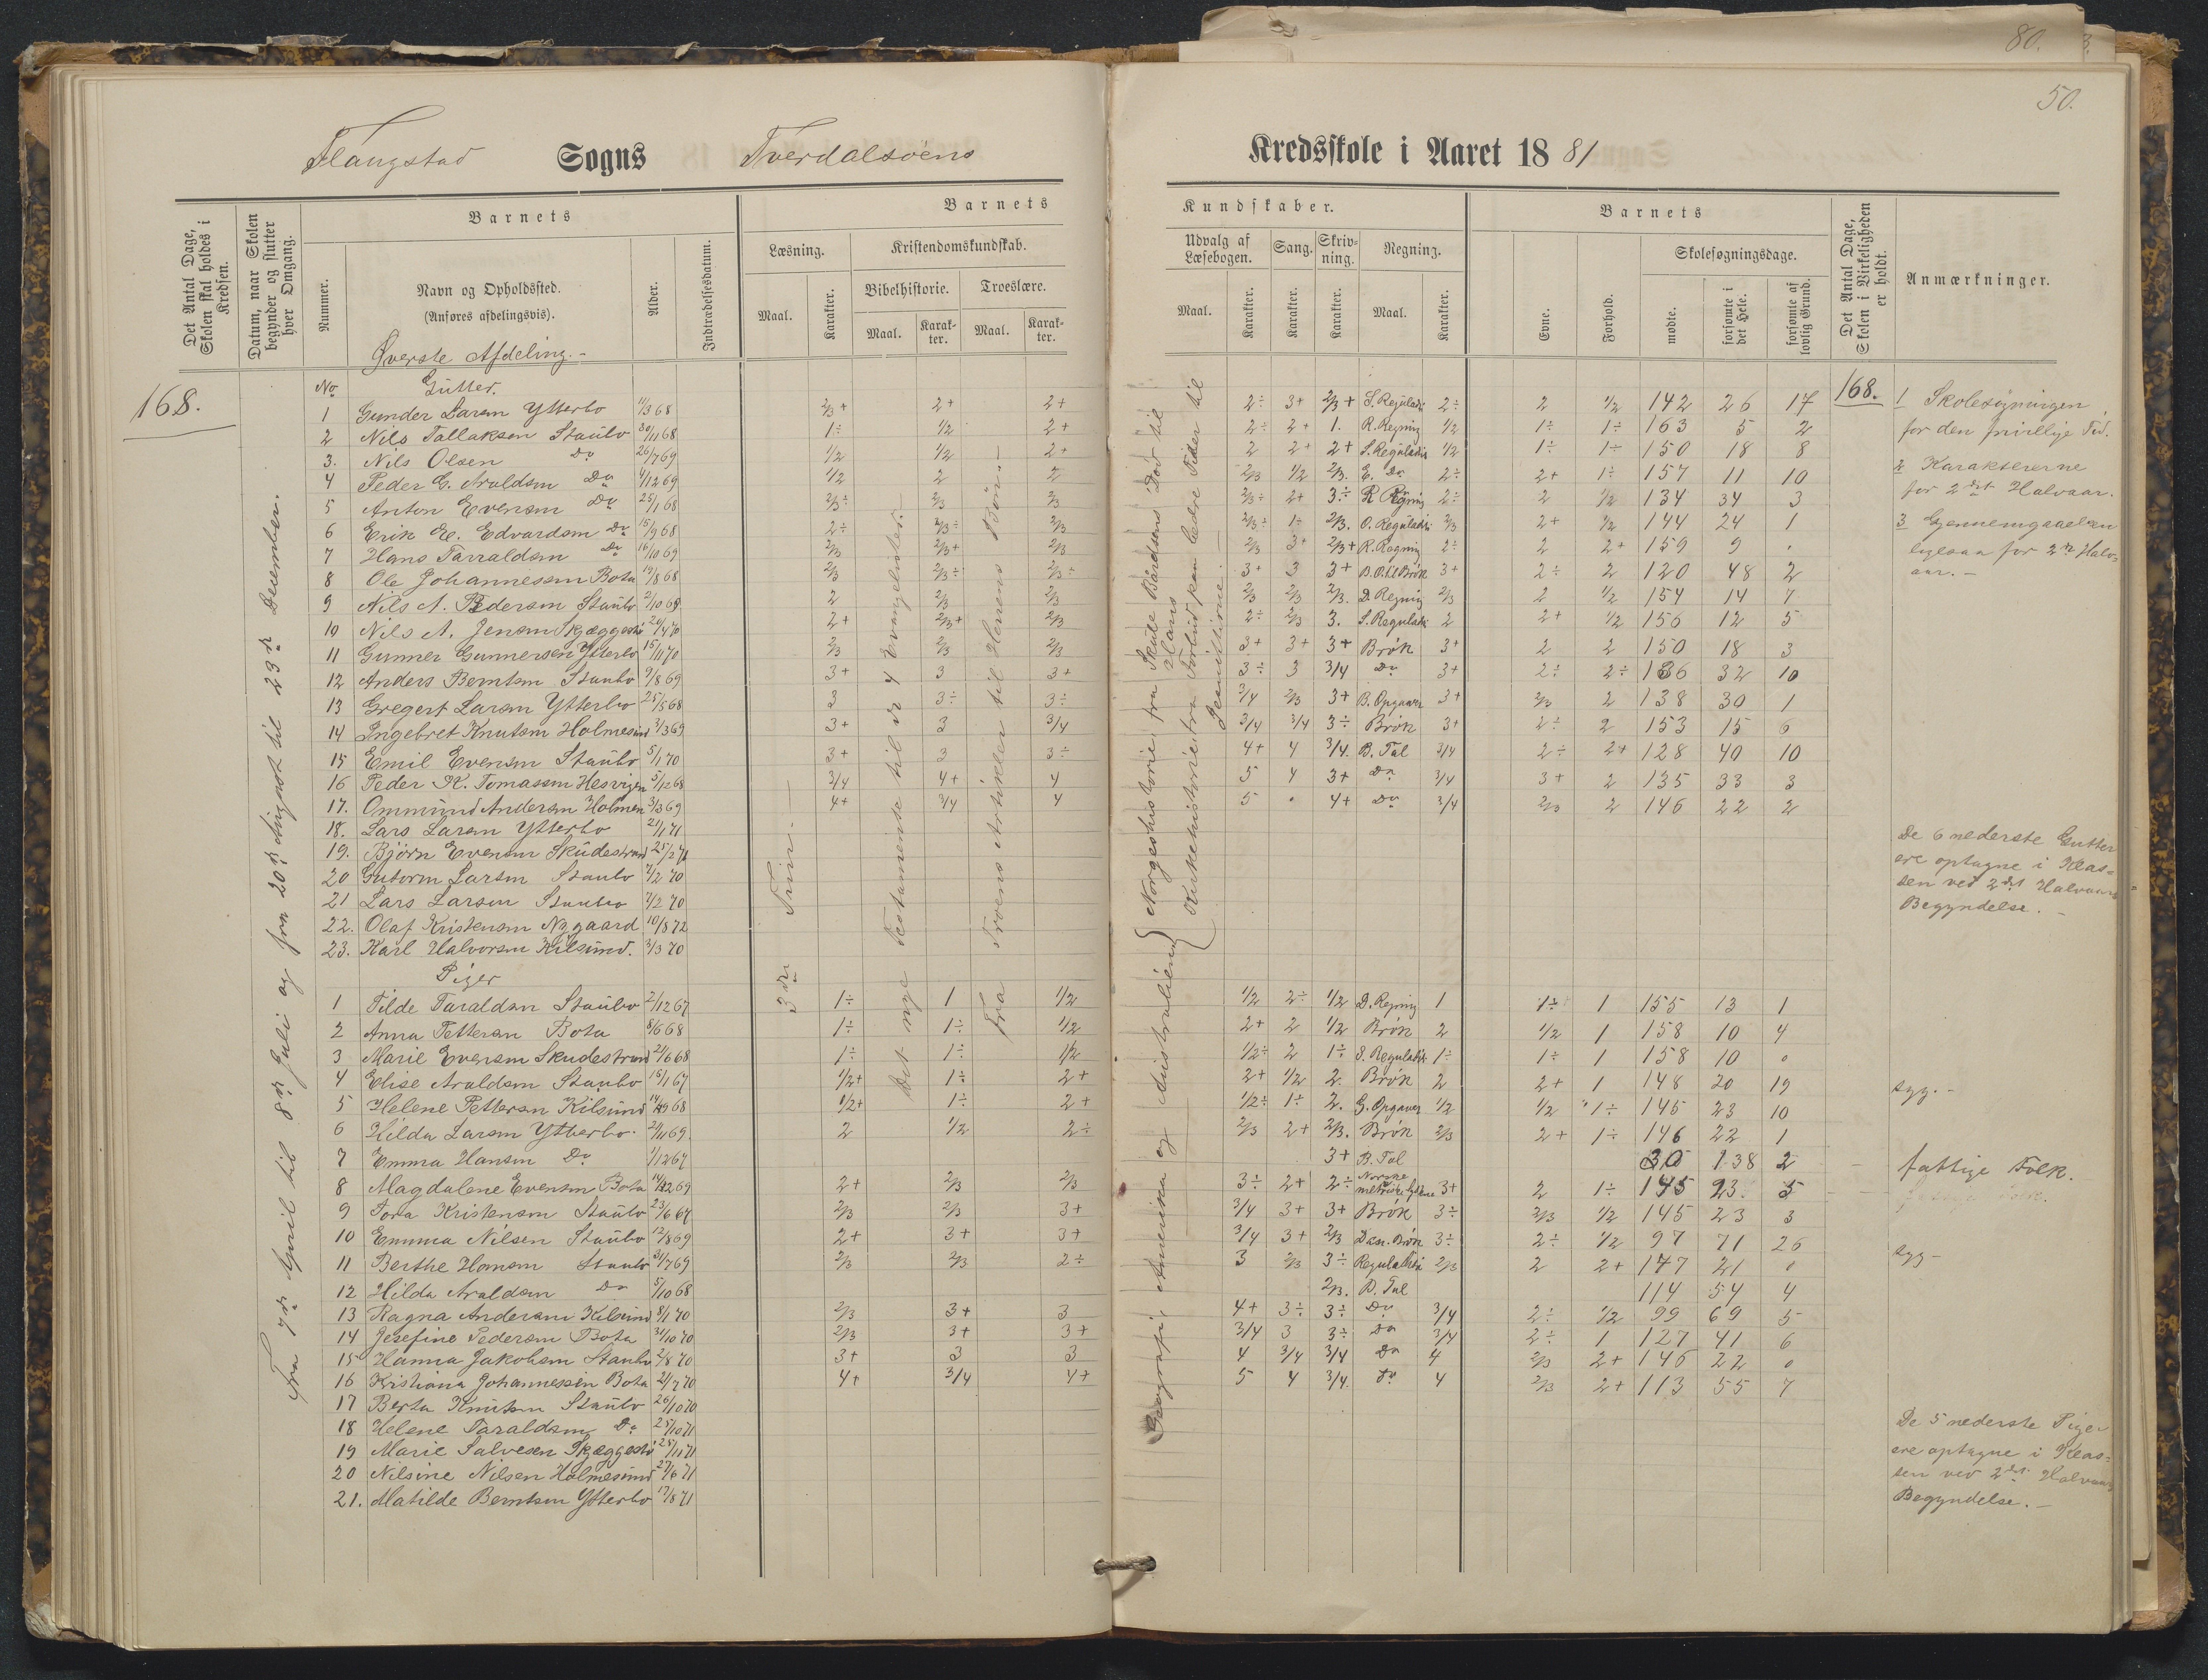 80.
50.
Flangstad Sogns Tverdalsøens
Kredsskole i Aaret 1881
Det Antal Dage, Skolen skal holdes i Kredsen.
Datum, naar Skolen begynder og slutter hver Omgang.
Barnets
Nummer.
Navn og Opholdssted.
(Anføres afdelingsvis).
Alder.
Indtrædelsesdatum.
Barnets
Læsning.
Maal.
Karakter.
Kristendomskundskab.
Bibelhistorie.
Maal.
Karakter.
Troeslære.
Maal.
Karakter.
Kundskaber.
Udvalg af Læsebogen.
Maal.
Karakter.
Sang.
Karakter.
Skrivning.
Karakter.
Regning.
Maal.
Karakter.
Barnets
Evne.
Forhold.
Skolesøgningsdage.
mødte.
forsømte i det Hele.
forsømte af lovlig Grund.
Det Antal Dage, Skolen i Virkeligheden er holdt.
Anmærkninger.
Øverste Afdeling.-
168.
Fra 7de April til 8de Juli og fra 20de August til 23de December.
3die Trin.
Det nye Testamente til de 4 Evangelister.
Fra Troens Artikler til Herrens Bøn.
Geografi: Amerika og Australien
Norgeshistorie, fra Skule Baardsens Død til
Kirkehistorie, fra Forbud paa bedre Tider til
No Gutter.
1 Gunder Larsen Ytterbo 11/3 68 2/3+ 2+ 2+ 2÷ 3+ 2/3+ S. Reguladi 2÷ 2 1/2 142 26 17
2 Nils Tallaksen Staubo 30/11 68 1÷ 1/2 2+ 2÷ 2+ 1. R. Regning 1/2 1÷ 1÷ 163 5 2
3. Nils Olsen Do 26/7 69 1/2 1/2 2+ 2 2+ 2+ S. Reguladi 1/2 1÷ 1÷ 150 18 8
4 Peder G. Araldsen Do 4/12 69 1/2 2 2 2/3 1/2 2/3. E. Do 2÷ 2+ 1÷ 157 11 10
5 Anton Evensen Do 25/1 68 2/3÷ 2/3 2/3 2/3÷ 2+ 3÷ R Regning 2÷ 2 1/2 134 34 3
6 Erik E. Edvardsen Do 15/9 68 2÷ 2/3÷ 2/3 2/3÷ 1÷ 2/3. O. Reguladi 2/3 2+ 1/2 144 24 1
7 Hans Tarraldsen Do 16/10 69 2/3 2/3+ 2/3 2/3 3+ 2/3+ R. Regning 2÷ 2 2+ 159 9 .
8 Ole Johannessen Bota 19/8 68 2/3 2/3÷ 2/3÷ 3+ 3 3+ B. O. til Brøk 3+ 2÷ 2 120 48 2
9 Nils A. Pedersen Staubo 2/10 69 2 2/3 2/3 2/3 2/3 2/3. D. Regning 2/3 2 1/2 154 14 7
10 Nils A. Jensen Skjæggestø 20/4 70 2+ 2/3+ 2/3 2÷ 2/3 3. S. Reguladi 2 2+ 1/2 156 12 5
11 Gunner Gunnersen Ytterbo 15/11 70 2/3 2/3 2/3 3+ 3+ 3+ Brøk 3+ 2 2 150 18 3
12 Anders Berntsen Staubo 9/8 69 3+ 3 3+ 3÷ 3 3/4 Do 3+ 2÷ 2÷ 136 32 10
13 Gregert Larsen Ytterbo 25/5 68 3 3÷ 3÷ 3/4 2/3 3+ B. Opgaver 3+ 2/3 2 138 30 1
14 Ingebret Knutsen Holmesund 7/3 69 3+ 3 3/4 3/4 3/4 3÷ Brøk 3+ 2÷ 2 153 15 6
15 Emil Evensen Staubo 5/1 70 3+ 3 3÷ 4+ 4 3/4. B. Tal 3/4 2÷ 2+ 128 40 10
16 Peder K. Tomassen Hesvigen 5/12 68 3/4 4+ 4 5 4 3+ Do 3/4 3+ 2 135 33 3
17. Ommund Andersen Holmen 3/3 69 4+ 3/4 4 5 . 4+ Do 3/4 2/3 2 146 22 2
18. Lars Larsen Ytterbo 21/1 71
19. Bjørn Evensen Skudestrand 25/2 71
20 Gutorm Larsen Staubo 7/2 70
21 Lars Larsen Staubo 7/2 70
22. Olaf Kristensen Nygaard 10/8 72
23. Karl Halvorsen Kilsund. 3/3 70
Piger
1 Tilde Taraldsen Staubo 2/12 67 1÷ 1 1/2 1/2 2÷ 1/2 D. Regning 1 1÷ 1 155 13 1
2 Anna Pettersen Bota 8/6 68 1÷ 1÷ 1/2 2+ 2 1/2 Brøk 2 1/2 1 158 10 4
3 Marie Evensen Skudestrand 21/6 68 1÷ 1÷ 1/2 1/2÷ 2 1÷ S. Reguladi 1÷ 1÷ 1 158 10 0
4 Elise Araldsen Staubo 15/1 67 1/2+ 1÷ 2+ 2+ 1/2 2. Brøk 2 2+ 1 148 20 19
5 Helene Pettersen Kilsund 14/9 68 1/2+ 1÷ 2+ 1/2÷ 1÷ 2. G. Opgaver 1/2 1/2 1÷ 145 23 10
6 Hilda Larsen Ytterbo. 2/11 69. 2 1/2 2÷ 2/3 2+ 2/3. Brøk 2/3 2+ 1÷ 146 22 1
7 Emma Hansen Do 1/12 67 3+ B. Tal 30 138 2
8 Magdalene Evensen Bota 14/12 69 2+ 2/3 2/3 3÷ 2+ 2÷ Norske metriske 3+ 2 1÷ 145 23. 5
9 Tora Kristensen Staubo 23/6 67 2/3 2/3 3+ 3/4 3+ 3+ Brøk 3÷ 2/3 1/2 145 23 3
10 Emma Nilsen Staubo 12/8 69 2+ 3+ 3+ 3/4 3+ 2/3 Brøk 3÷ 2÷ 1/2 97 71 26
11 Berthe Hansen Staubo 31/7 69 2/3 2/3 2÷ 3 2/3 3÷ Reguladi 2/3 2 2+ 147 21 0
12 Hilda Araldsen Do 5/10 68 2/3. B. Tal 114 54 4
13 Ragna Andersen Kilsund 8/1 70 2/3 3+ 3 4+ 3÷ 3÷ Do 3/4 2÷ 1/2 99 69 5
14 Josefine Pedersen Bota 31/10 70 2/3 3+ 3+ 3/4 3 3÷ Do 3/4 2÷ 1 127 41 6
15 Hanna Jakobsen Staubo 2/8 70 3+ 3 3 4 3/4 3/4 Do 4 2/3 2+ 146 22 0
16 Kristiana Johannessen Bota 21/7 70 4+ 3/4 4+ 5 4 3/4. Do 4 2/3 2+ 113 55 7
17 Berta Knutsen Staubo 26/10 70
18 Helene Taraldsen Do 25/10 71
19 Marie Salvesen Skjæggestø 25/11 71
20 Nilsine Nilsen Holmesund 27/6 71
21. Matilde Berntsen Ytterbo 17/8 71
168.
1 Skolesøgningen
for den frivillige Tid.
2 Karaktererne
for 2det Halvaar.
3 Gjennemgaaelsen
ligesaa for 2det Halv-
aar.-
De 6 nederste Gutter
ere optagne i Klas-
sen ved 2det Halvaars
Begyndelse.-
syg.-
fattige Folk.
syg-
De 5 nederste Piger
ere optagne i Klas-
sen ved 2det Halvaars
Begyndelse.-